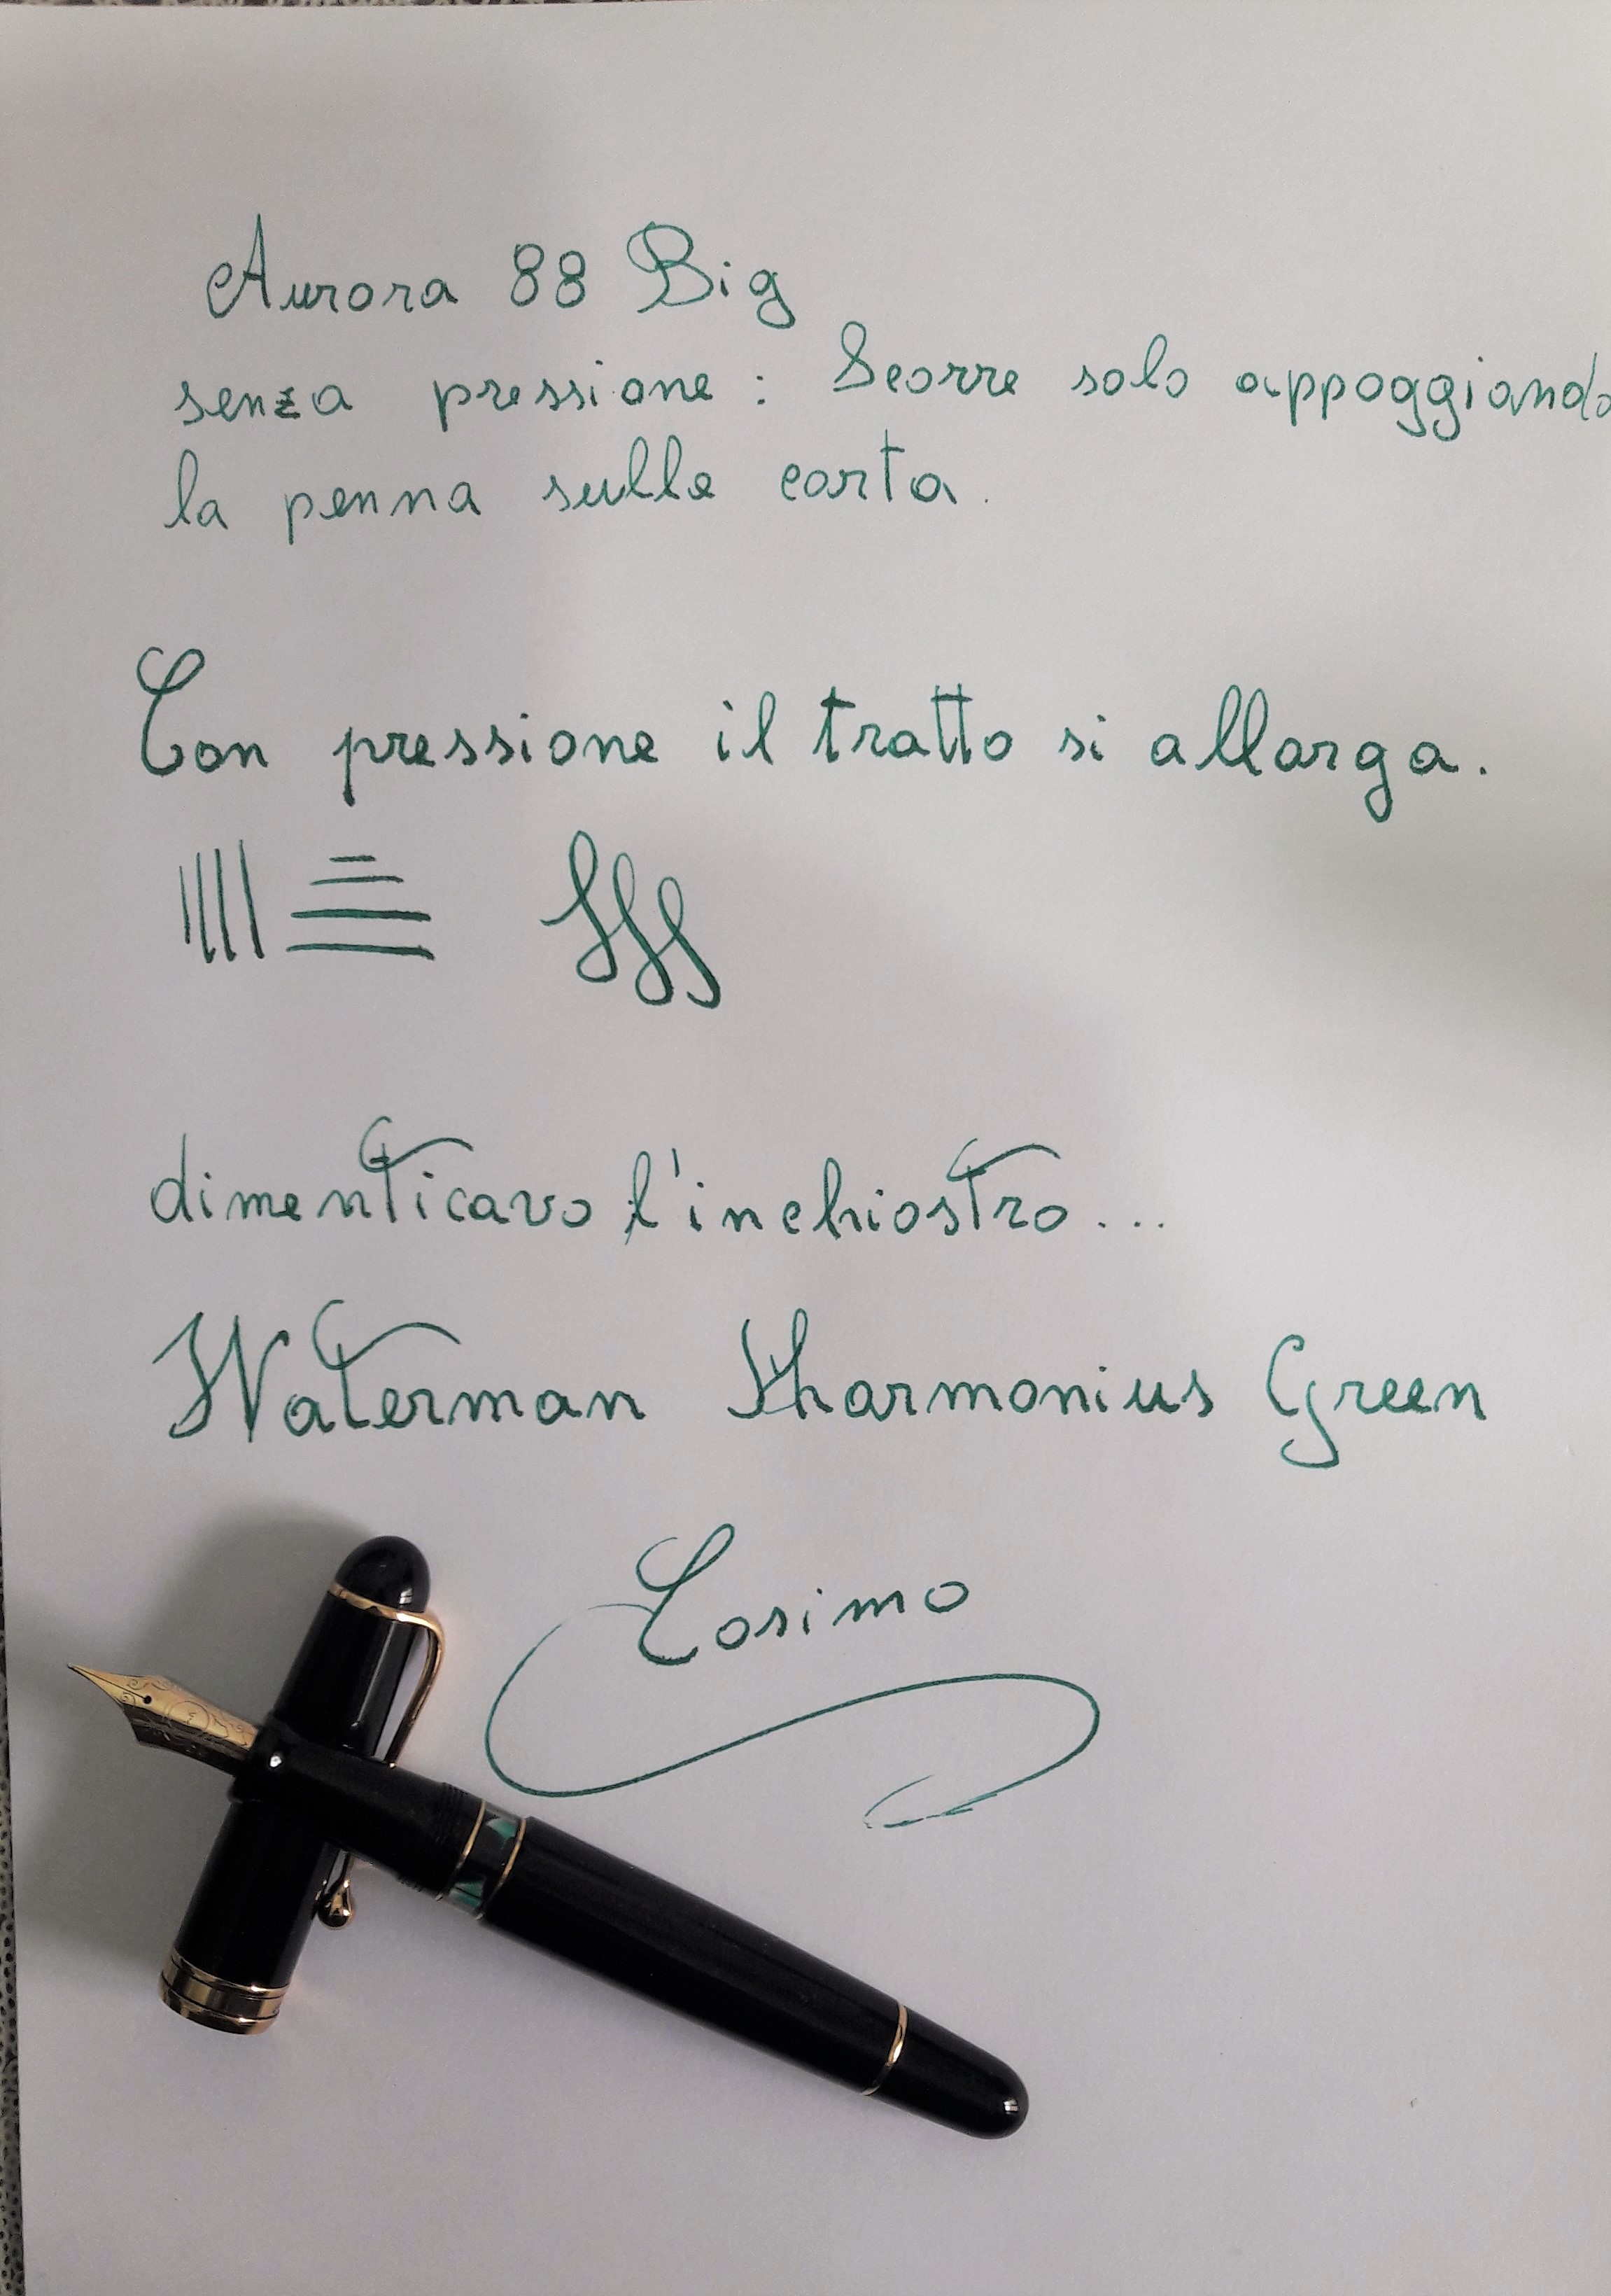 Aurora 88 Big
senza pressione: Scorre solo appoggiando
la penna sulla carta.
Con pressione il tratto si allarga.
dimenticavo l'inchiostro...
Waterman Harmonius Green
Cosimo